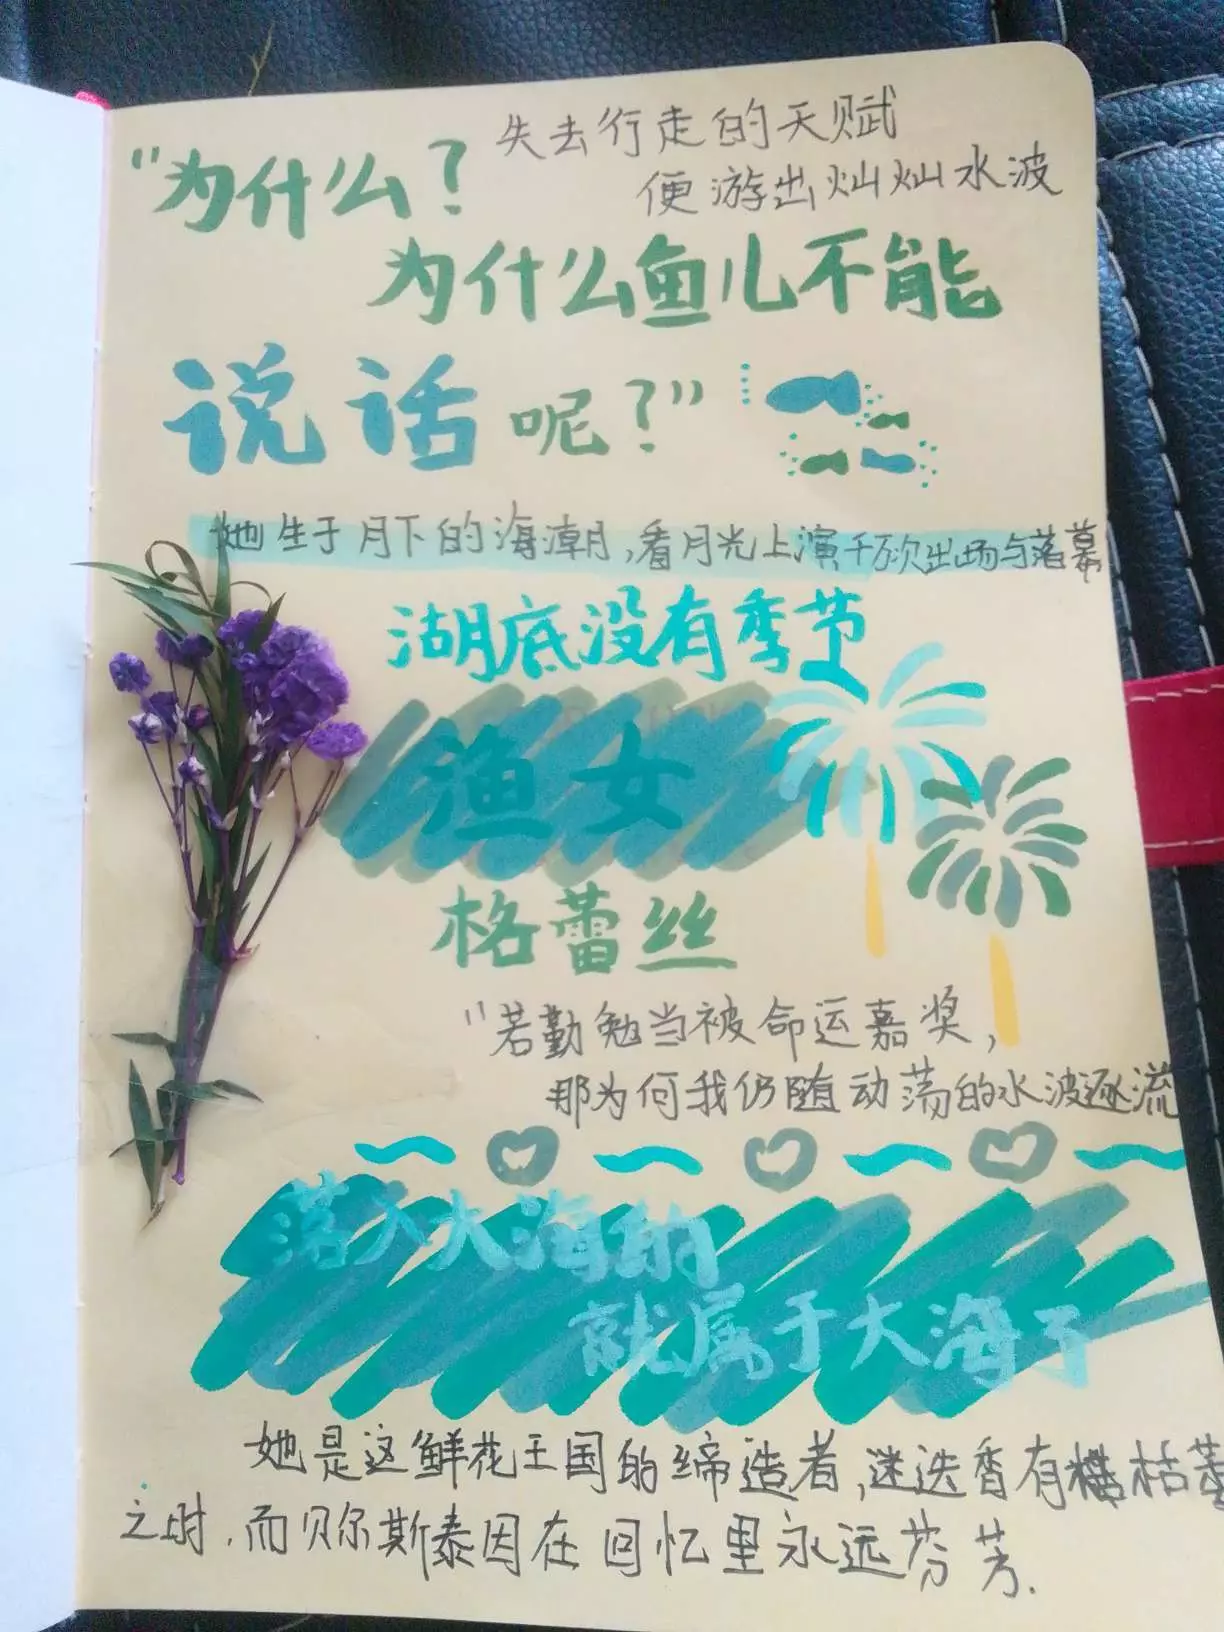 失去行走的天赋
便游出灿灿水波
"为什么？
为什么鱼儿不能
说话呢？"
她生于月下的海潮，看月光上演千万次出场与落幕
湖底没有季节
渔女
格蕾丝
"若勤勉当被命运嘉奖，
那为何我仍随动荡的水波逐流
落入大海的
就属于大海了
她是这鲜花王国的缔造者，迷迭香有枯萎
之时，而贝尔斯泰因在回忆里永远芬芳.